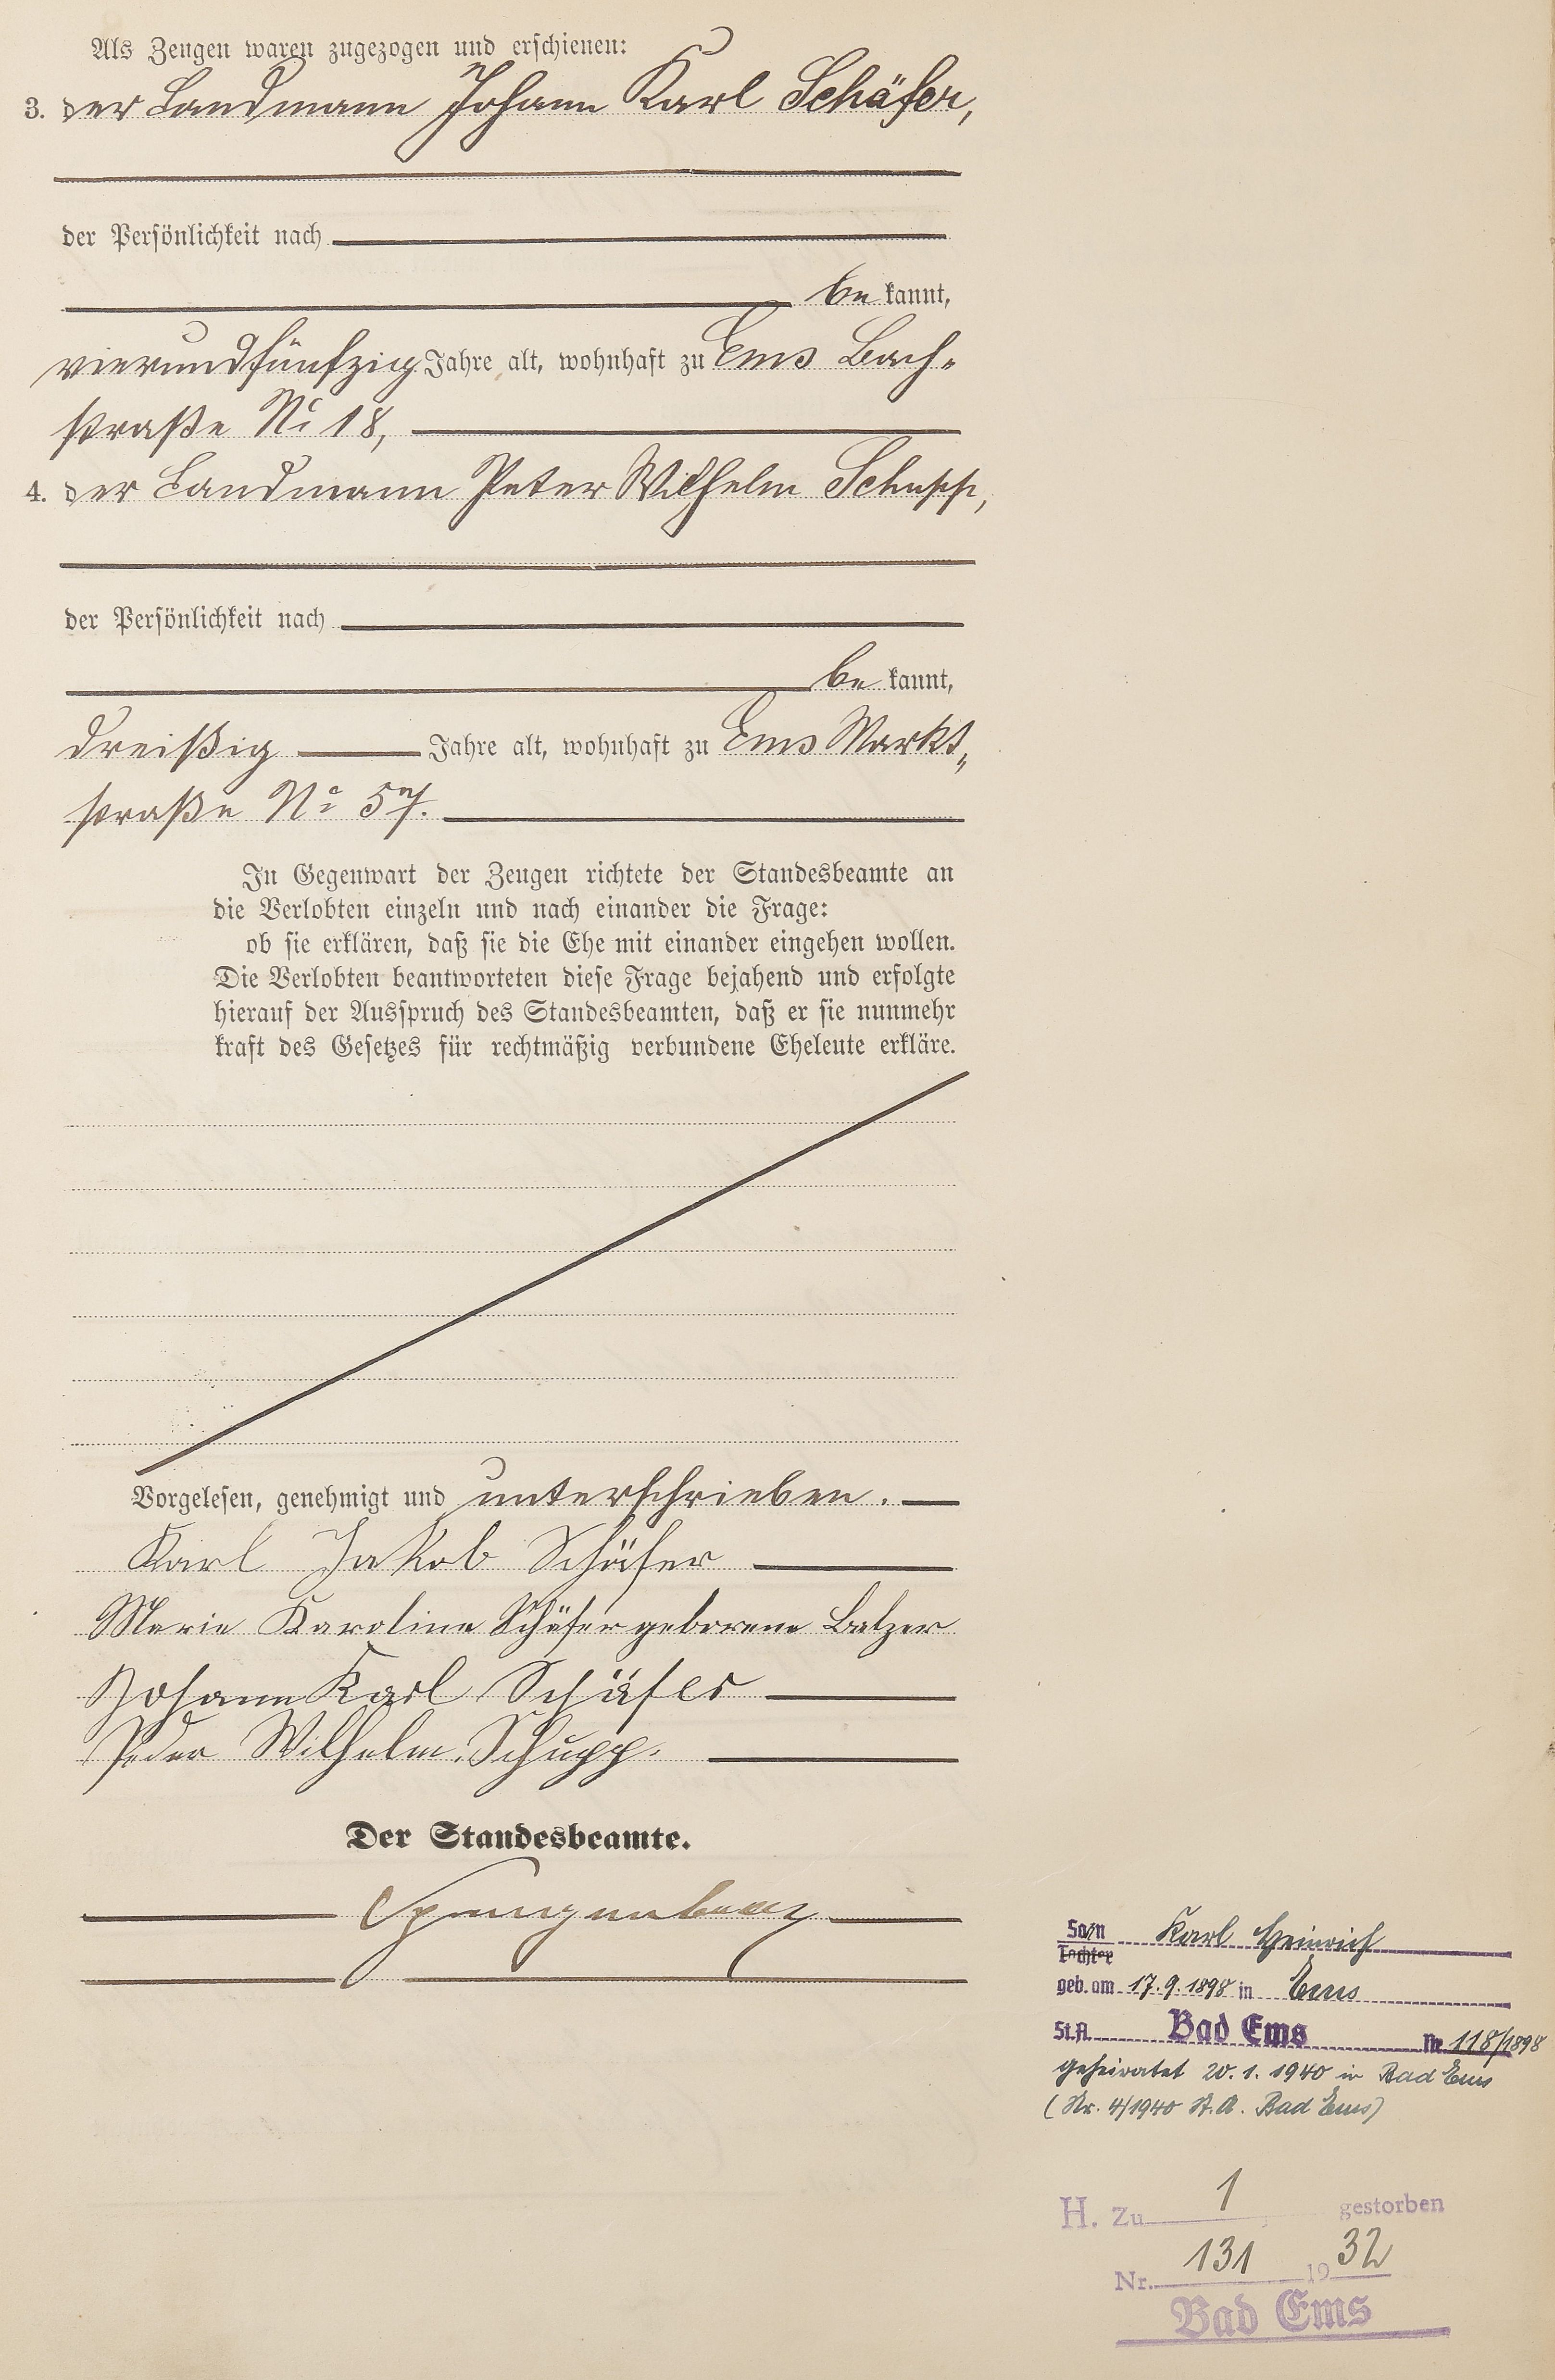 Als Zeugen waren zugezogen und erschienen:
3. der Landmann Johann Karl Schäfer,
der Persönlichkeit nach
be kannt,
vierundfünfzig Jahre alt, wohnhaft zu Ems Bach-
straße No 18,
4. der Landmann Peter Wilhelm Schupp,
der Persönlichkeit nach
be kannt,
dreißig Jahre alt, wohnhaft zu Ems Markt-
straße No 57.
In Gegenwart der Zeugen richtete der Standesbeamte an
die Verlobten einzeln und nach einander die Frage:
ob sie erklären, daß sie die Ehe mit einander eingehen wollen.
Die Verlobten beantworteten diese Frage bejahend und erfolgte
hierauf der Ausspruch des Standesbeamten, daß er sie nunmehr
kraft des Gesetzes für rechtmäßig verbundene Eheleute erkläre.
Vorgelesen, genehmigt und unterschrieben.
Karl Jakob Schäfer
Marie Karoline Schäfer geborene Balzer
Johann Karl Schäfer
Peter Wilhelm Schupp.
Der Standesbeamte.
Sohn Karl Heinrich
Tochter
geb. am 17.9.1898 in Ems
St.A. Bad Ems Nr. 118/1898
geheiratet 20.1.1940 in Bad Ems
(Nr. 4/1940 St.A. Bad Ems)
H. Zu 1 gestorben
Nr. 131 1932
Bad Ems